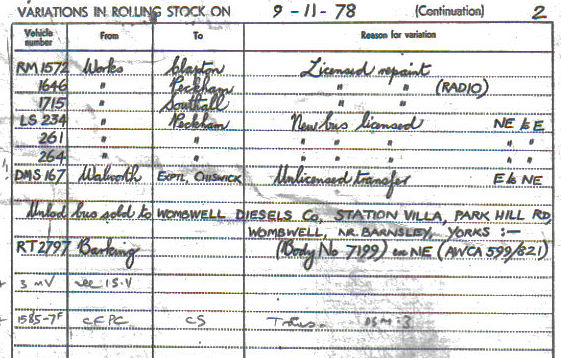 VARIATIONS IN ROLLING STOCK ON 9-11-78 (Continuation) 2
Vehicle number From To Reason for variation
RM 1572 Works Clapton Licensed repaint
1646 " Peckham " " (RADIO)
1715 " Southall " "
LS 234 " Peckham New bus licensed NE to E
261 " " " " " " "
264 " " " " " " "
DMS 167 Walworth EXPTL, CHISWICK Unlicensed transfer E to NE
Unlcd bus sold to WOMBWELL DIESELS Co, STATION VILLA, PARK HILL RD,
WOMBWELL, NR. BARNSLEY, YORKS :—
RT2797 Barking (Body No 7199) ex NE (AWCA 599/821)
3 MV see 15.V
1585-7F CFPC CS Trans.